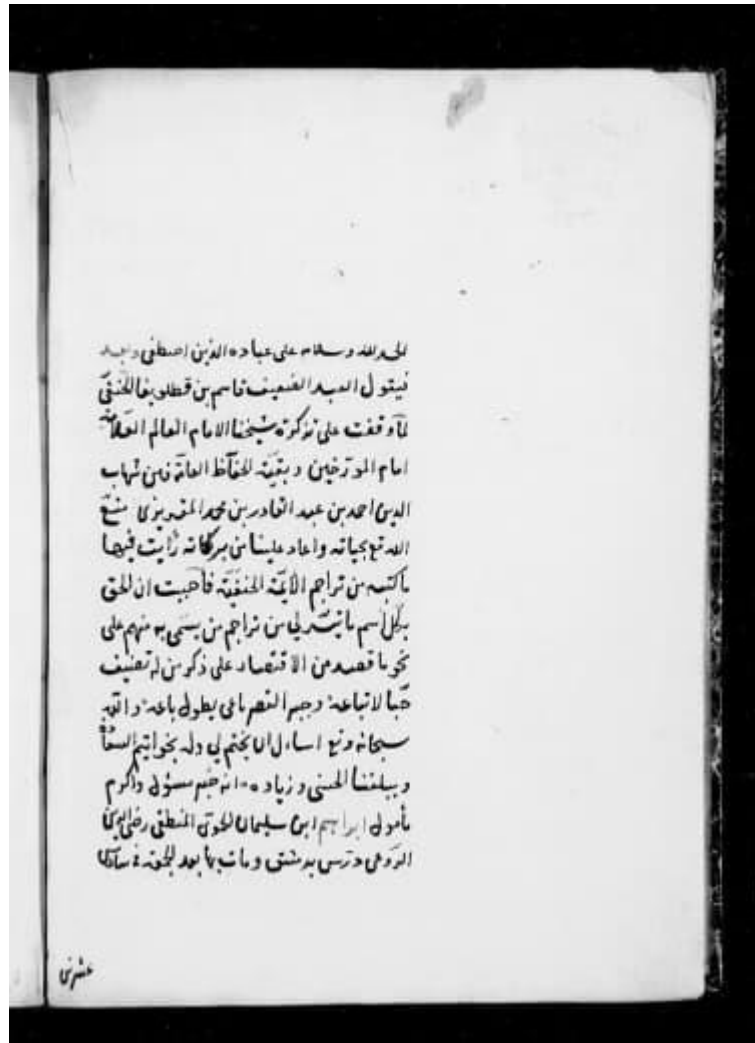 الحمد لله وسلام على عباده الذين اصطفى وبعد
فيقول العبد الضعيف قاسم بن قطلوبغا الحنفي
لما وقفت على تذكرة شيخنا الامام العالم العلامة
امام المورخين وبقية الحفاظ شهاب
الدين احمد بن عبد القادر بن محمد المقريزي متع
الله تع بحياته واعاد علينا من بركاته رأيت فيها
ما كتبه من تراجم الأئمة الحنفية فأحببت ان الحق
بكل اسم ما تيسر لي من تراجم من يسمى به منهم على
نحو ما قصده من الاقتصار على ذكر من له تصنيف
حبا لاتباعه وجبر القصر باعي بطول باعه والله
سبحانه وتع اسأل ان يختم لي وله بخواتيم السعادة
ويبلغنا الحسنى وزيادة انه خير مسؤل واكرم
مأمول ابراهيم ابن سليمان الحموي المنطقي رضي الدين
الرومي درس بدمشق ومات بها بعد الحجة في سادس
عشرى